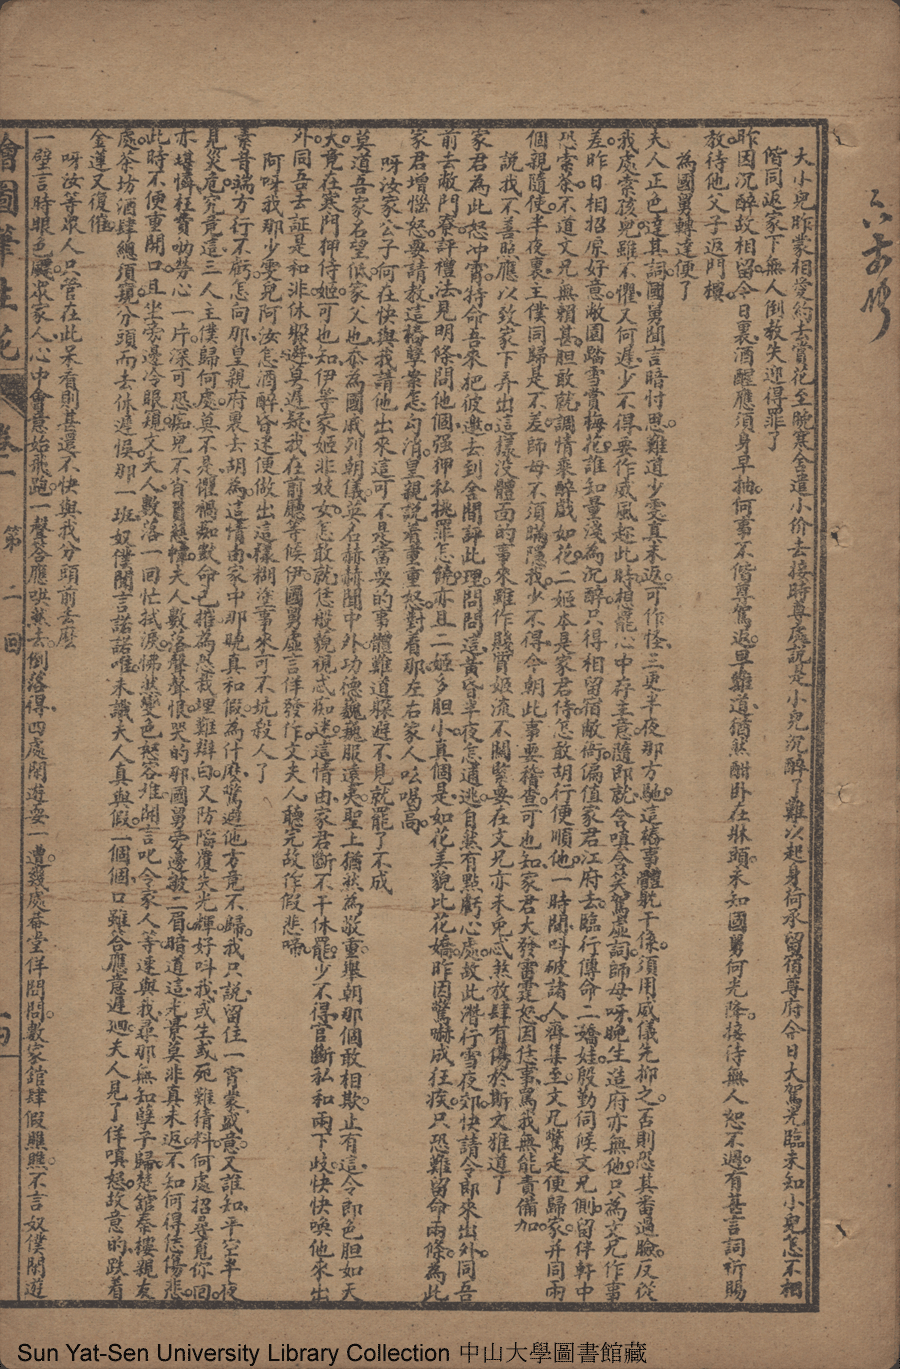 大小兒昨蒙相愛約去賞花至晚寒舍遣小价去接時尊處說是小兒沉醉了難以起身荷承留宿尊府今日大駕光臨未知小兒怎不相
偕同返家下無人倒教失迎得罪了
昨因沉醉故相留今日裏酒醒應須身早抽何事不偕尊駕返早難道猶然酣卧在牀頭未知國舅何光降接待無人恕不週有甚言詞祈賜
教待他父子返門樓
為國舅轉達便了
夫人正色達其詞國舅聞言暗忖思難道少雯真未返可作怪三更半夜那方馳這樁事體躭干係須用威儀先抑之否則恐其番過臉反從
我處索孩兒雖不懼又何遲少不得要作威風起此時相寵心中存主意隨即就含嗔含笑駕虛詞師母呀晚生造府亦無他只為文兄作事
差昨日相招原好意敝園踏雪賞梅花誰知量淺為沉醉只得相留宿敝衙偏值家君江府去臨行傳命二嬌娃殷勤伺候文兄側留伴軒中
恐索茶不道文兄無賴甚胆敢就調情乘醉戲如花二姬本是家君侍怎敢胡行便順他一時間叫破諸人齊集至文兄驚走便歸家并同兩
個親隨使半夜裏主僕同歸是不差師母不須瞞隱我少不得今朝此事要稽查可也知家君大發雷霆怒因恁事罵我無能責備加
說我不善照應以致家下弄出這樣沒體面的事來雖作賤賓姬流不關緊要在文兄亦未免忒煞放肆有傷於斯文雅道了
家君為此怒冲霄特命吾來把彼邀去到舍間評此理問問這黃昏半夜怎遁逃自然有點虧心處故此潛行雪夜郊快請令郎來出外同吾
前去敝門寮評禮法見明條問他個强押私挑罪怎饒亦且二姬多胆小真個是如花美貌比花嬌昨因驚嚇成狂疾只恐難留命兩條為此
家君增惱怒要請教這樁孽案怎勾消皇親說着重重怒對着那左右家人吆喝高
呀汝家公子何在快與我請他出來這可不是當耍的事體難道躲避不見就罷了不成
莫道吾家名望低家父也泰為國戚列朝儀英名赫赫聞中外功德巍巍服遠夷聖上猶然為敬重舉朝那個敢相欺止有這令郎色胆如天
大竟在寒門狎侍姬可也知伊等家姬非妓女怎敢就恁般藐視忒痴迷這情由家君斷不干休罷少不得官斷私和兩下歧快快喚他來出
外同吾去証是和非休躲避莫遲疑我在前廳等候伊國舅虛言佯發作文夫人聽完故作假悲啼
阿呀我那少雯兒阿汝怎酒醉昏迷便做出這樣糊塗事來可不坑殺人了
素昔端方行不虧怎向那皇親府裏去胡為這情由家中那曉真和假為什麼驚避他方竟不歸我只說留住一宵蒙盛意又誰知平空半夜
見災危究竟這三人主僕歸何處莫不是懼禍痴獃命已摧為怎栽埋難辯白又防陷溺失光輝好叫我或生或死難猜料何處招尋覓你回
亦堪憐枉費劬勞心一片深可恐痴兒不肖貿彝憧夫人數落聲聲恨哭的那國舅旁邊皺二眉暗道這光景莫非真未返不知何得恁傷悲
此時不便重開口且坐旁邊冷眼窺文夫人數落一回忙拭淚怫然變色怒容堆開言叱令家人等速與我尋那無知孽子歸楚舘秦樓親友
處茶坊酒肆總須窺分頭而去休遲悞那一班奴僕聞言諾諾唯未識夫人真與假一個個口雖答應意遲迴夫人見了佯嗔怒故意的跌着
金蓮又復催
呀汝等眾人只管在此呆看則甚還不快與我分頭前去麼
一壁言時眼色飄眾家人心中會意始飛跑一聲答應哄然去倒落得四處閑遊耍一遭幾處菴堂佯問問數家舘肆假瞧瞧不言奴僕閑遊
繪圖筆生花 卷二 第二回
Sun Yat-Sen University Library Collection 中山大學圖書館藏